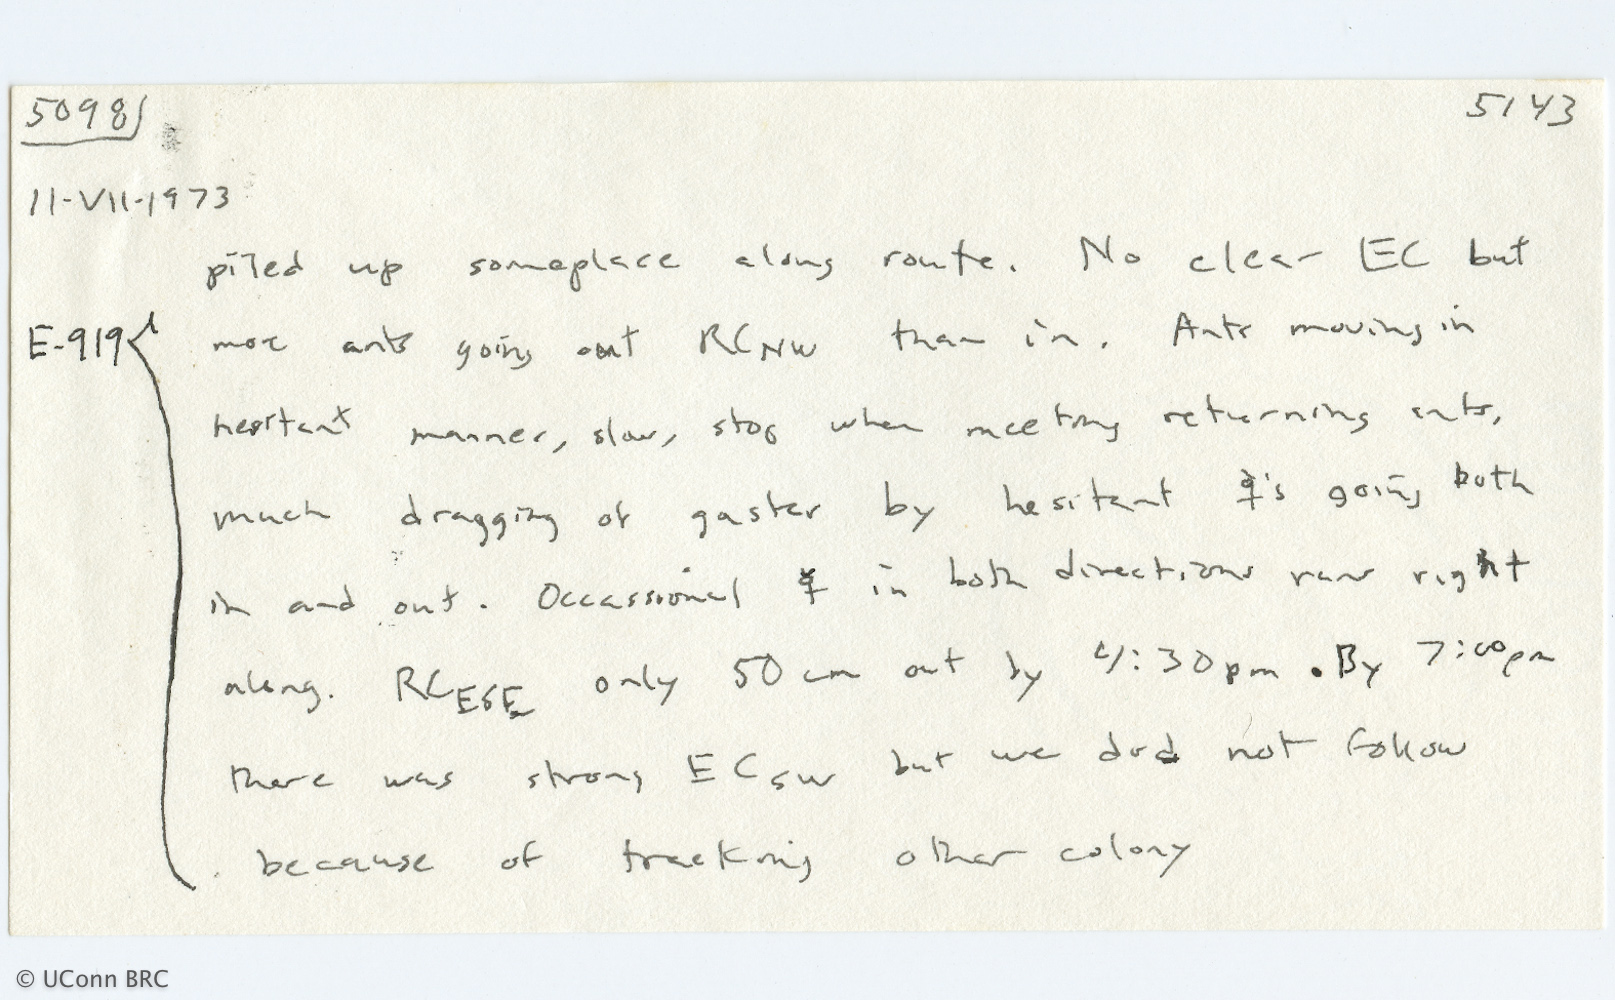 5098 5143
11-VII-1973
piled up someplace along route. No clear EC but
E-919 more ants going out RCNW than in. Ants moving in
hesitant manner, slow, stop when meeting returning ants,
much dragging of gaster by hesitant ☿'s going both
in and out. Occassional ☿ in both directions runs right
along. RCESE only 50 cm out by 4:30pm. By 7:00pm
there was strong ECSW but we did not follow
because of tracking other colony
© UConn BRC